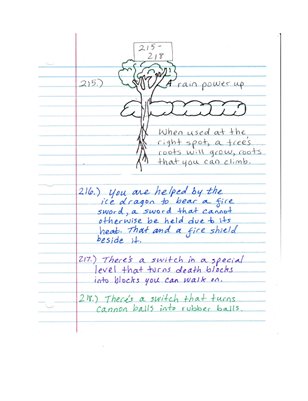 215-
218
215.) rain power up
When used at the
right spot, a tree's
roots will grow, roots
that you can climb.
216.) You are helped by the
ice dragon to bear a fire
sword, a sword that cannot
otherwise be held due to its
heat. That and a fire shield
beside it.
217.) There's a switch in a special
level that turns death blocks
into blocks you can walk on.
218.) There's a switch that turns
cannon balls into rubber balls.